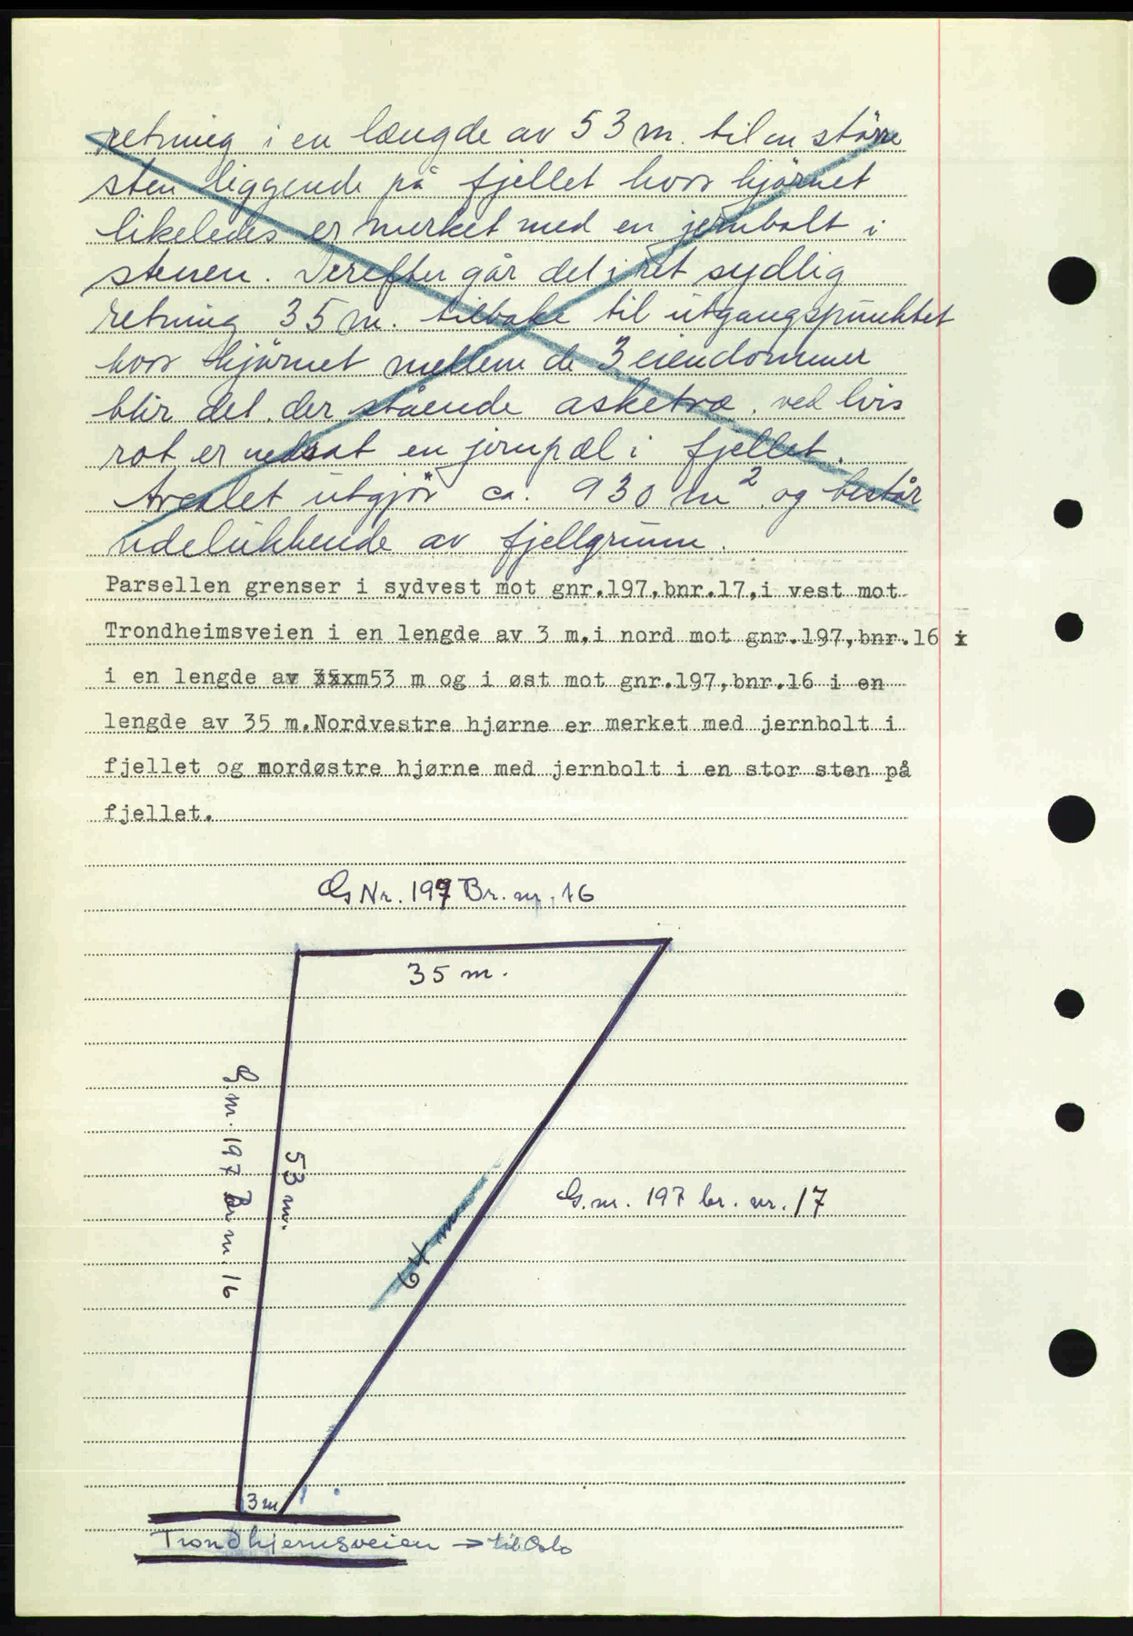 retning i en længde av 53 m. til en större
sten liggende på fjellet hvor hjörnet
likeledes er merket med en jernbolt i
stenen. Derefter går det i ret sydlig
retning 35 m. tilbake til utgangspunktet
hvor hjörnet mellem de 3 eiendommer
blir det der stående asketræ ved hvis
rot er nedsat en jernpæl i fjellet.
Arealet utgjör ca. 930 m² og består
udelukkende av fjellgrunn.
Parsellen grenser i sydvest mot gnr.197,bnr.17,i vest mot
Trondheimsveien i en lengde av 3 m,i nord mot gnr.197,bnr.16 i
i en lengde av 35xm53 m og i øst mot gnr.197,bnr.16 i en
lengde av 35 m.Nordvestre hjørne er merket med jernbolt i
fjellet og nordøstre hjørne med jernbolt i en stor sten på
fjellet.
G Nr. 197 Br. nr. 16
35 m.
G. nr. 197 Br nr. 16
53 m.
G. nr. 197 br. nr. 17
3 m
Trondhjemsveien → til Oslo